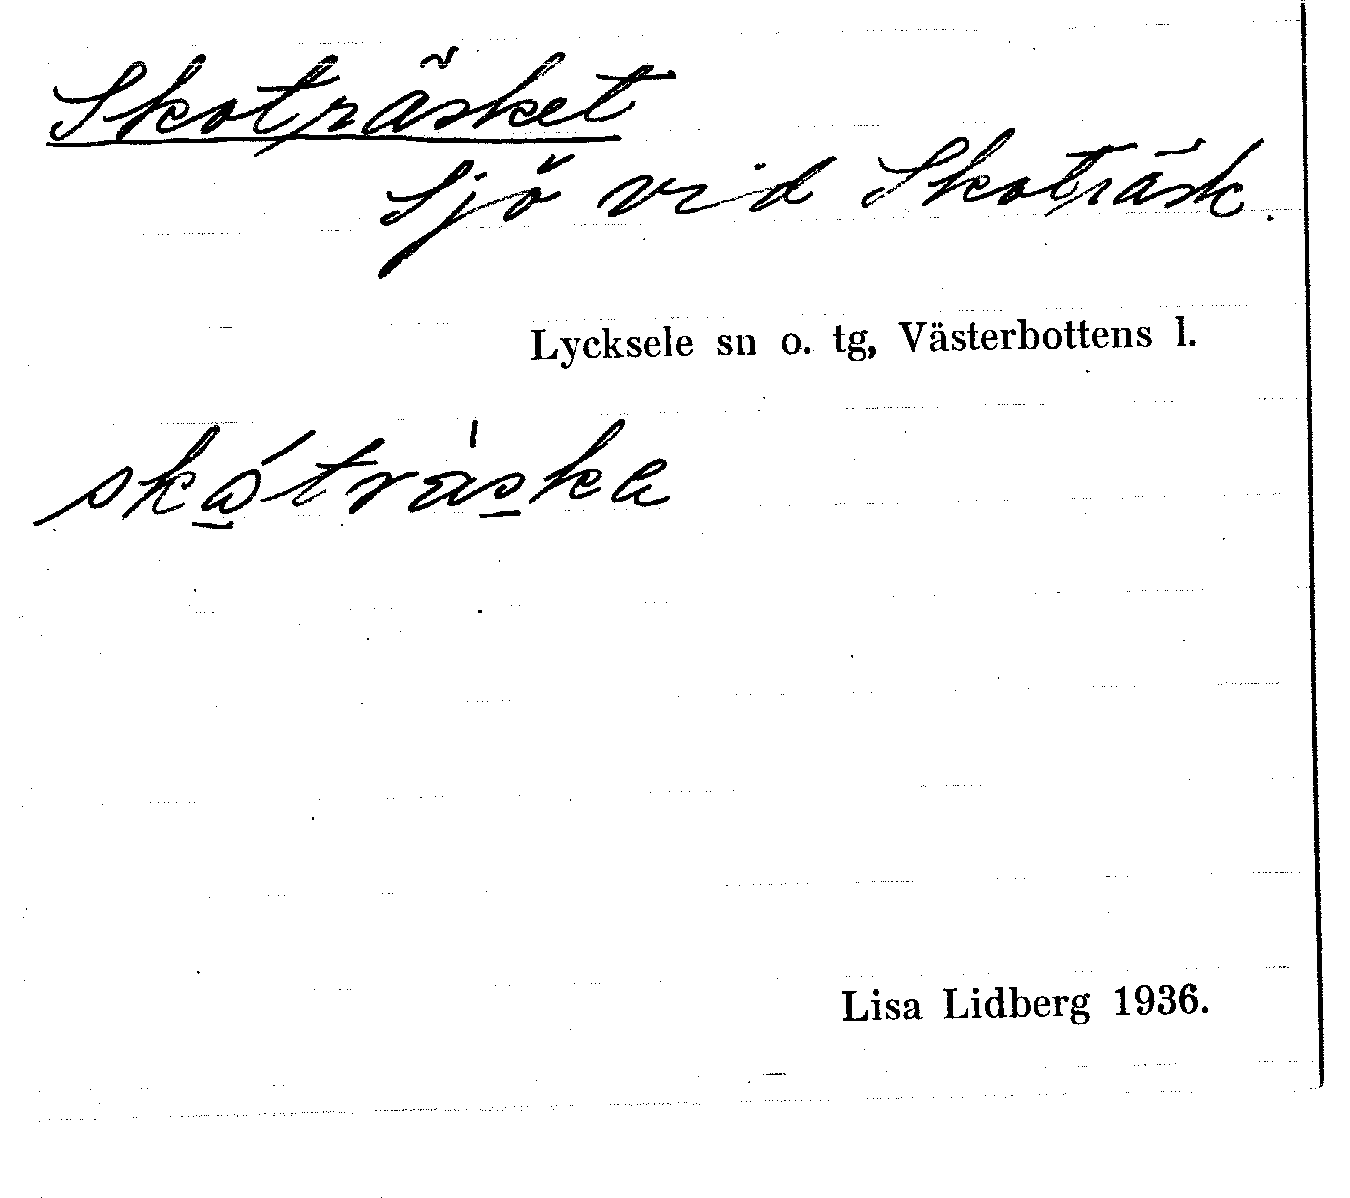 Skoträsket
Sjö vid Skoträsk.
Lycksele sn o. tg, Västerbottens l.
skótràska
Lisa Lidberg 1936.